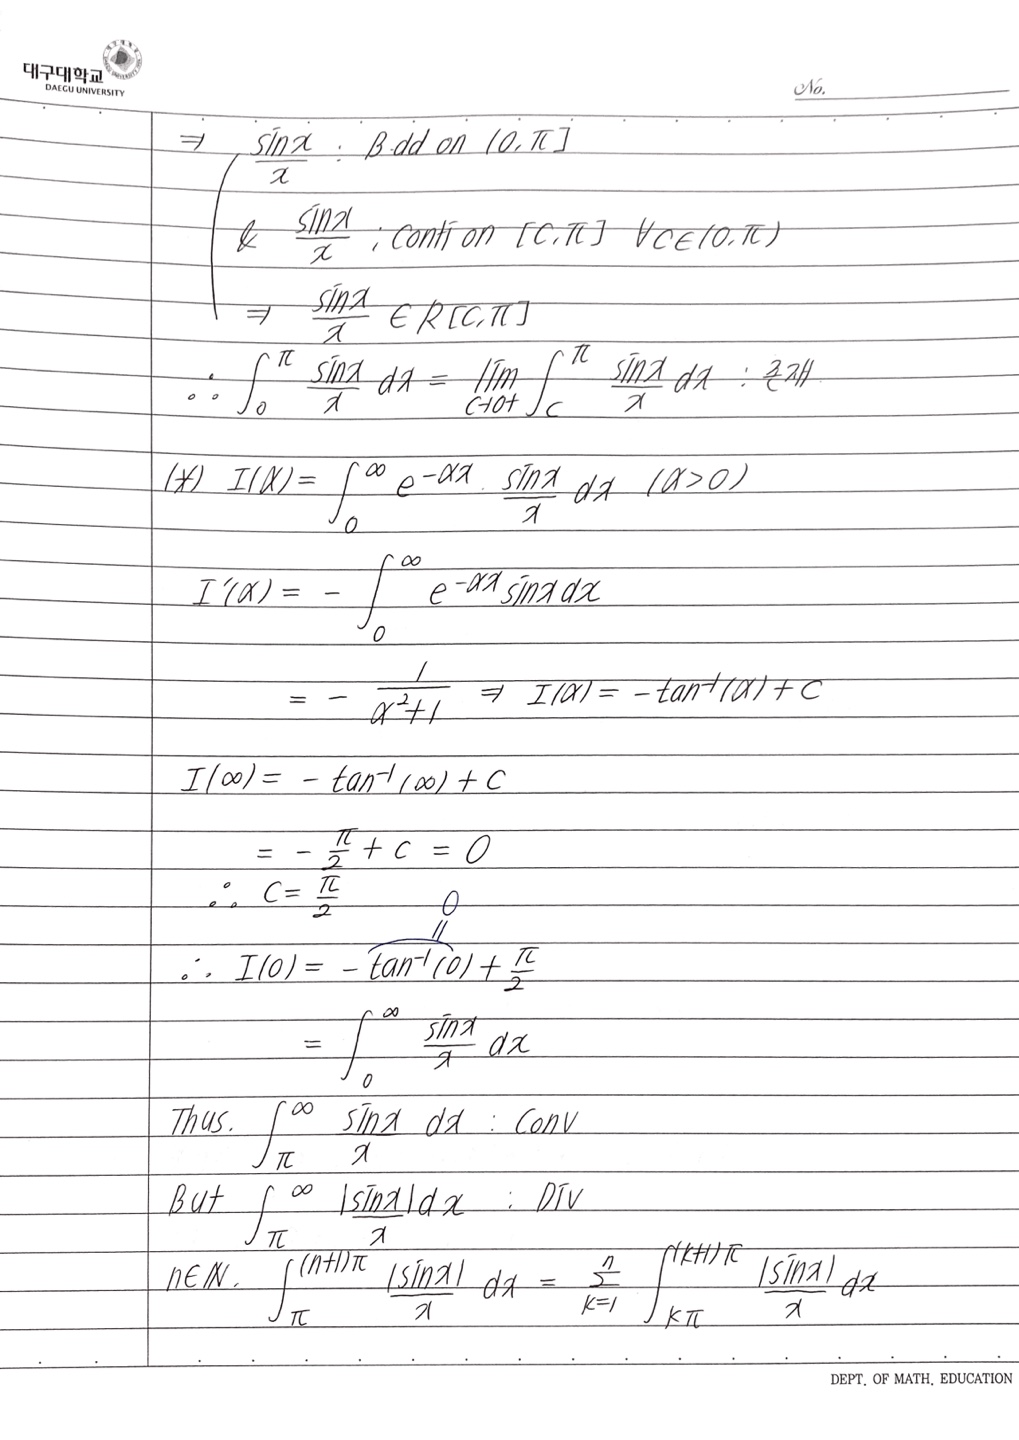 대구대학교
DAEGU UNIVERSITY
No.
⇒ sinx/x : B.dd on (0, π]
& sinx/x ; conti on [C, π] ∀C∈(0, π)
⇒ sinx/x ∈ R[C, π]
∴ ∫_0^π sinx/x dx = lim_{C→0+} ∫_C^π sinx/x dx : 존재
(*) I(α) = ∫_0^∞ e^{-αx} · sinx/x dx (α>0)
I'(α) = - ∫_0^∞ e^{-αx} sinx dx
= - 1/(α²+1) ⇒ I(α) = -tan⁻¹(α) + C
I(∞) = - tan⁻¹(∞) + C
= - π/2 + C = 0
∴ C = π/2
0
=
∴ I(0) = -tan⁻¹(0) + π/2
= ∫_0^∞ sinx/x dx
Thus. ∫_π^∞ sinx/x dx : Conv
But ∫_π^∞ |sinx|/x dx : Div
n∈ℕ. ∫_π^{(n+1)π} |sinx|/x dx = Σ_{k=1}^n ∫_{kπ}^{(k+1)π} |sinx|/x dx
DEPT. OF MATH. EDUCATION